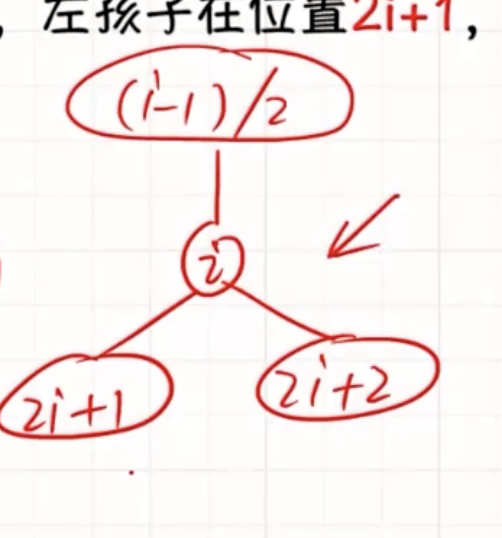 ，左孩子在位置2i+1，
(i-1)/2
i
2i+1
2i+2